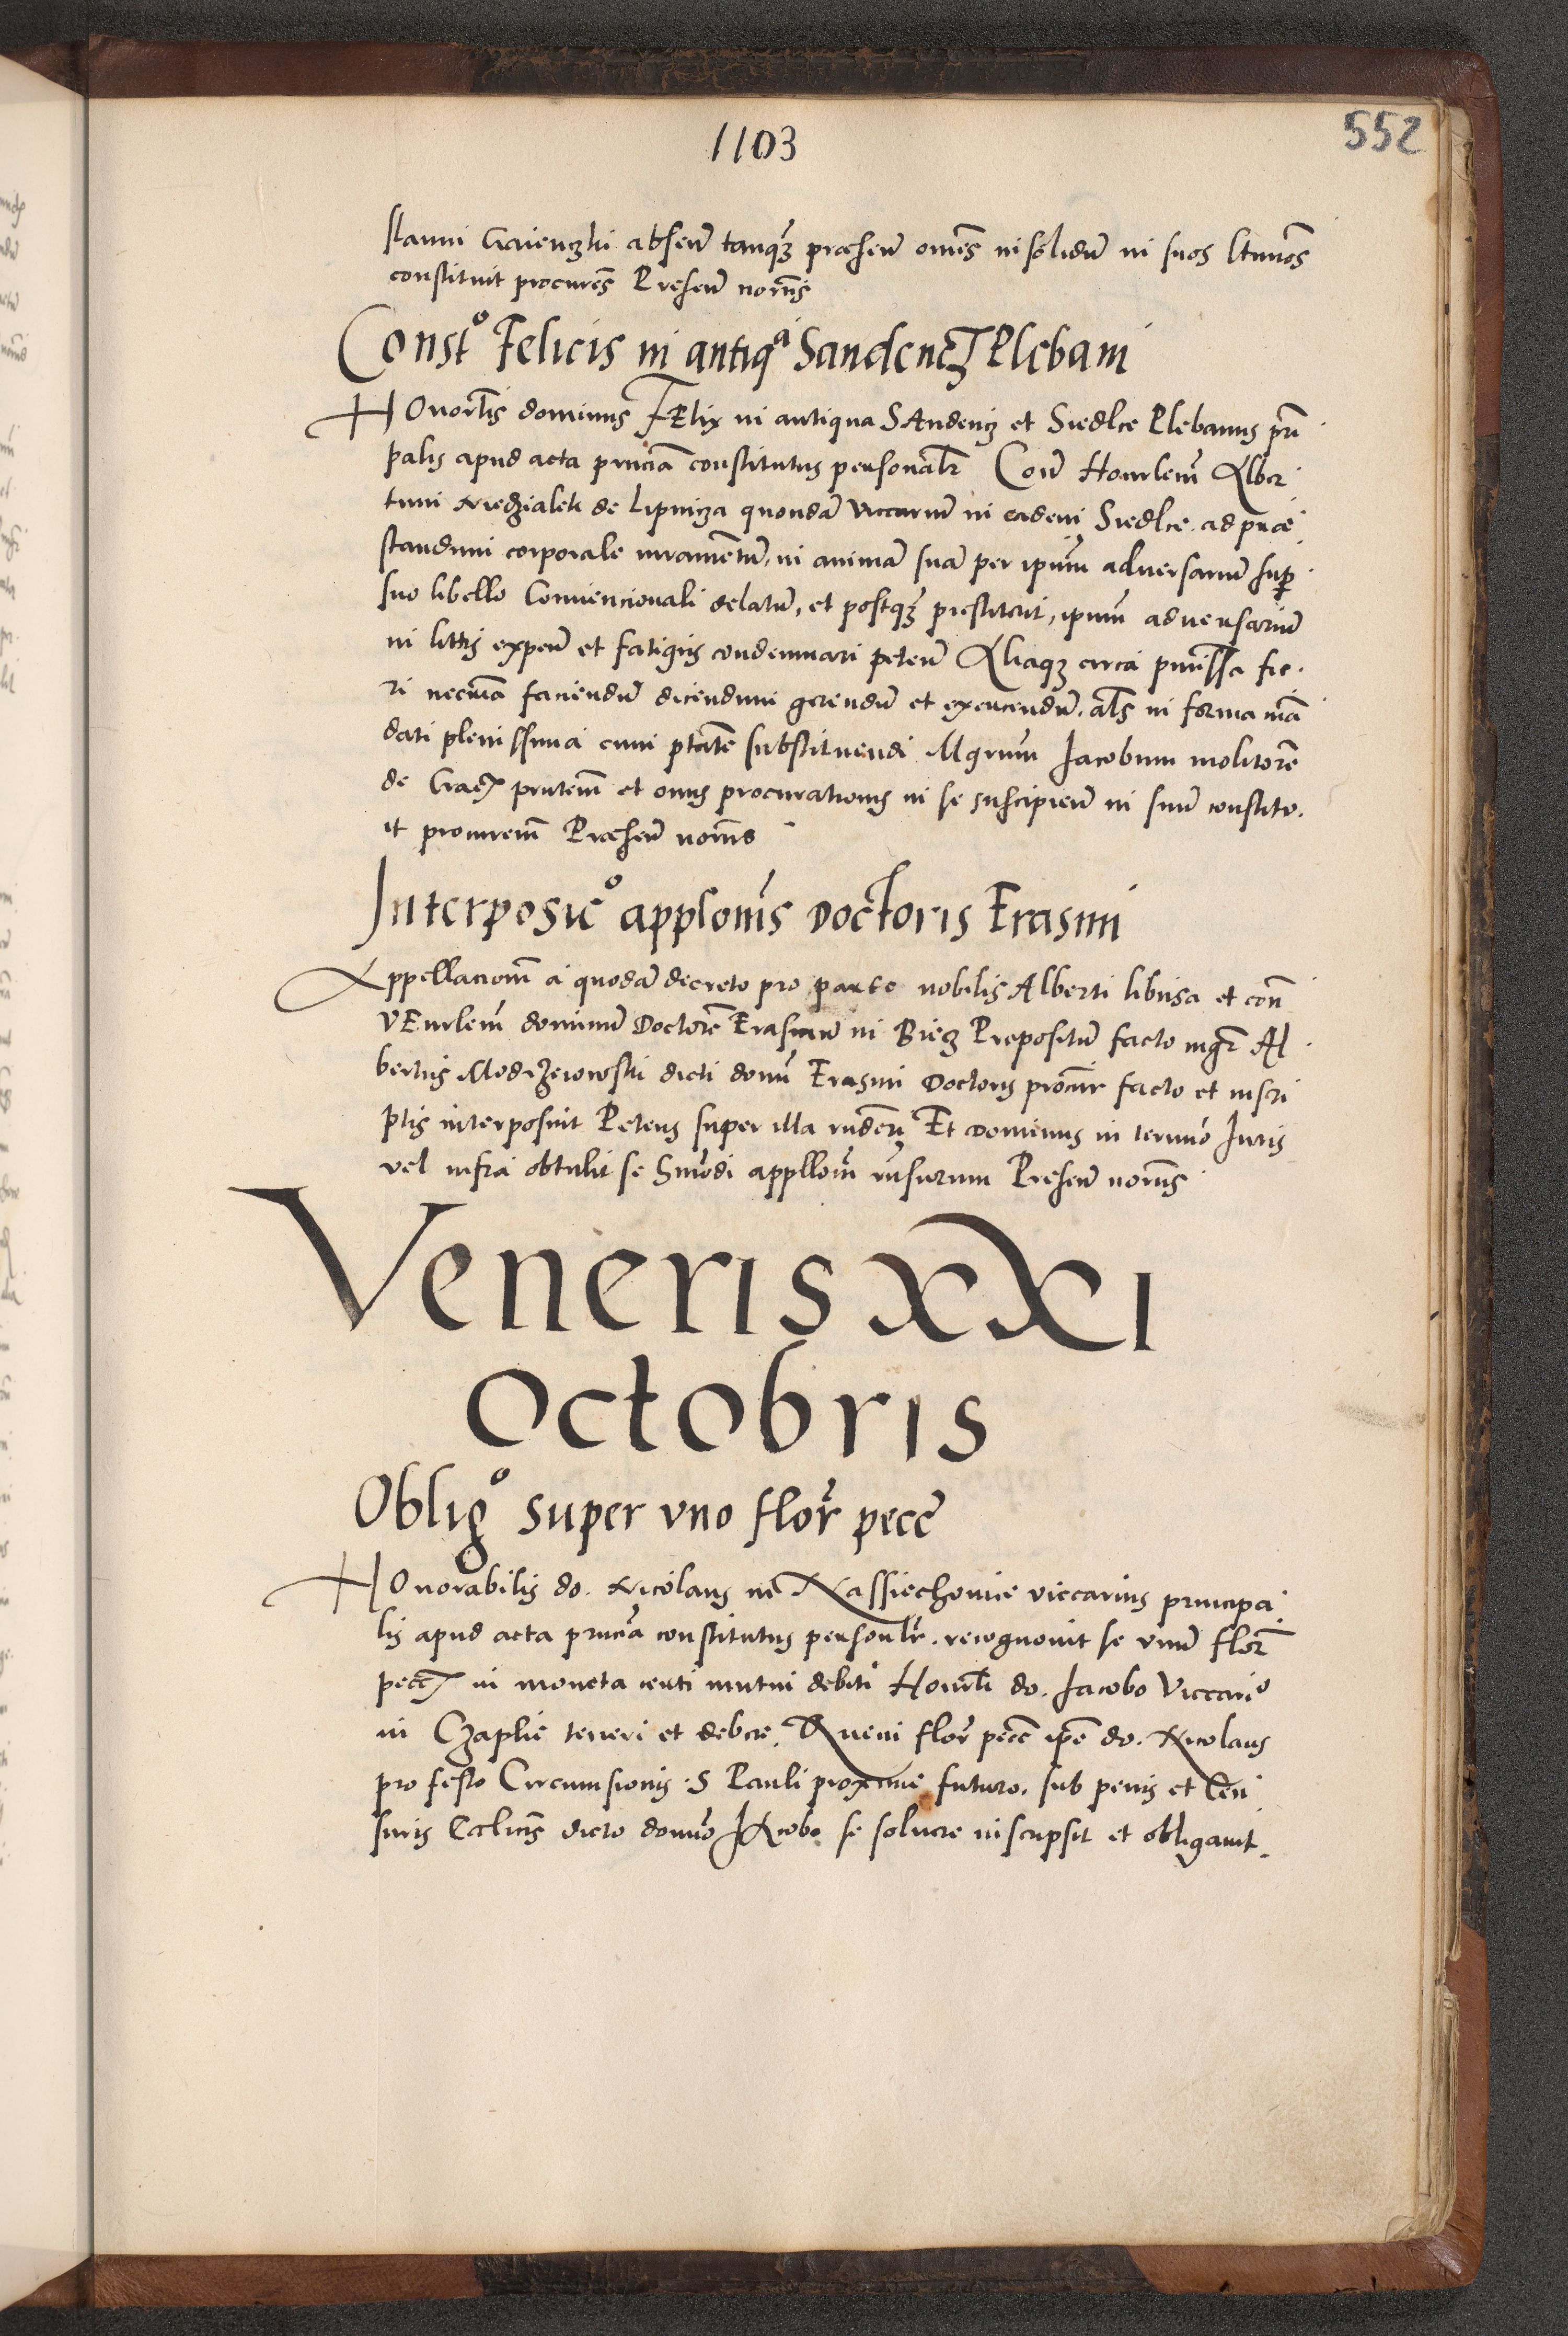 1103
552
slaum Gaienczki absen̄ tanqʒ praesen̄ om̄es in solidū in suos l̄timos
constituit procurēs Presen̄ notar̄ijs
Const° Felicis in antiqa Sandencz Plebani
HOnorl̄is dominus FElix in antiqua SAndencz et Siedlce Plebanus prn̄
palis apud acta prn̄ciā constitutus personalr̄ Con̄ Honorlem̄ Alber
tum Niedzialek de Lipnicza quondā viccariū in eadem Siedlce. ad prae
standum corporale iuramentū, in animā suā per ipsum̄ adversariū sup̱
suo libello Convencionali delatū, et postqʒ prestiterit, ipsum̄ adversariū
in littis expen̄ et fatigijs condemnari peten̄ Aliaqʒ circa pmīssa fie.
ri necīa faciendū dicendum gerendū et exercendū. al̄s in forma mā
dati plenissima cum ptātē substituendi Mgrum̄ Jacobum molitorē
de Grac pn̄tem̄ et onus procurationis in se suscipien̄ in suū constitu.
it procurem̄ Praesen̄ notar̄ijs
Interposic° applōnis Doctoris Erasmi
Appellacionē a quodā decreto pro parte nobilis Alberti libusa et con̄
VEnrlem̄ dominū Doctorē Erasmū in Biecz Prepositū facto mgr̄ Al
bertus Modrzewski dicti domn̄i Erasmi Doctoris procūr facto et inscri
ptis interposuit Petens super illa rnderi Et Dominus in termīo Juris
vel infra obtulit se hmōdi appllōni rn̄surum Presen̄ notar̄ijs
Veneris XXI
Octobris
Oblig° super vno flor̄ pecc̄
HOnorabilis do. Nicolaus in Rassiechovice viccarius principa
lis apud acta prn̄cia constitutus personlr̄. recognovit se vnū flor̄
pecc̄ in moneta certi mutui debiti Honorl̄i do. Jacobo Viccario
in Czaplie teneri et debere. Quem flor̄ pecc̄ ipē do. Nicolaus
pro festo Circumsionis S Pauli proxime futuro. sub penis et Cen
suris Ecclicis dicto domīo JAcobo se solvere inscripsit et obligavit.